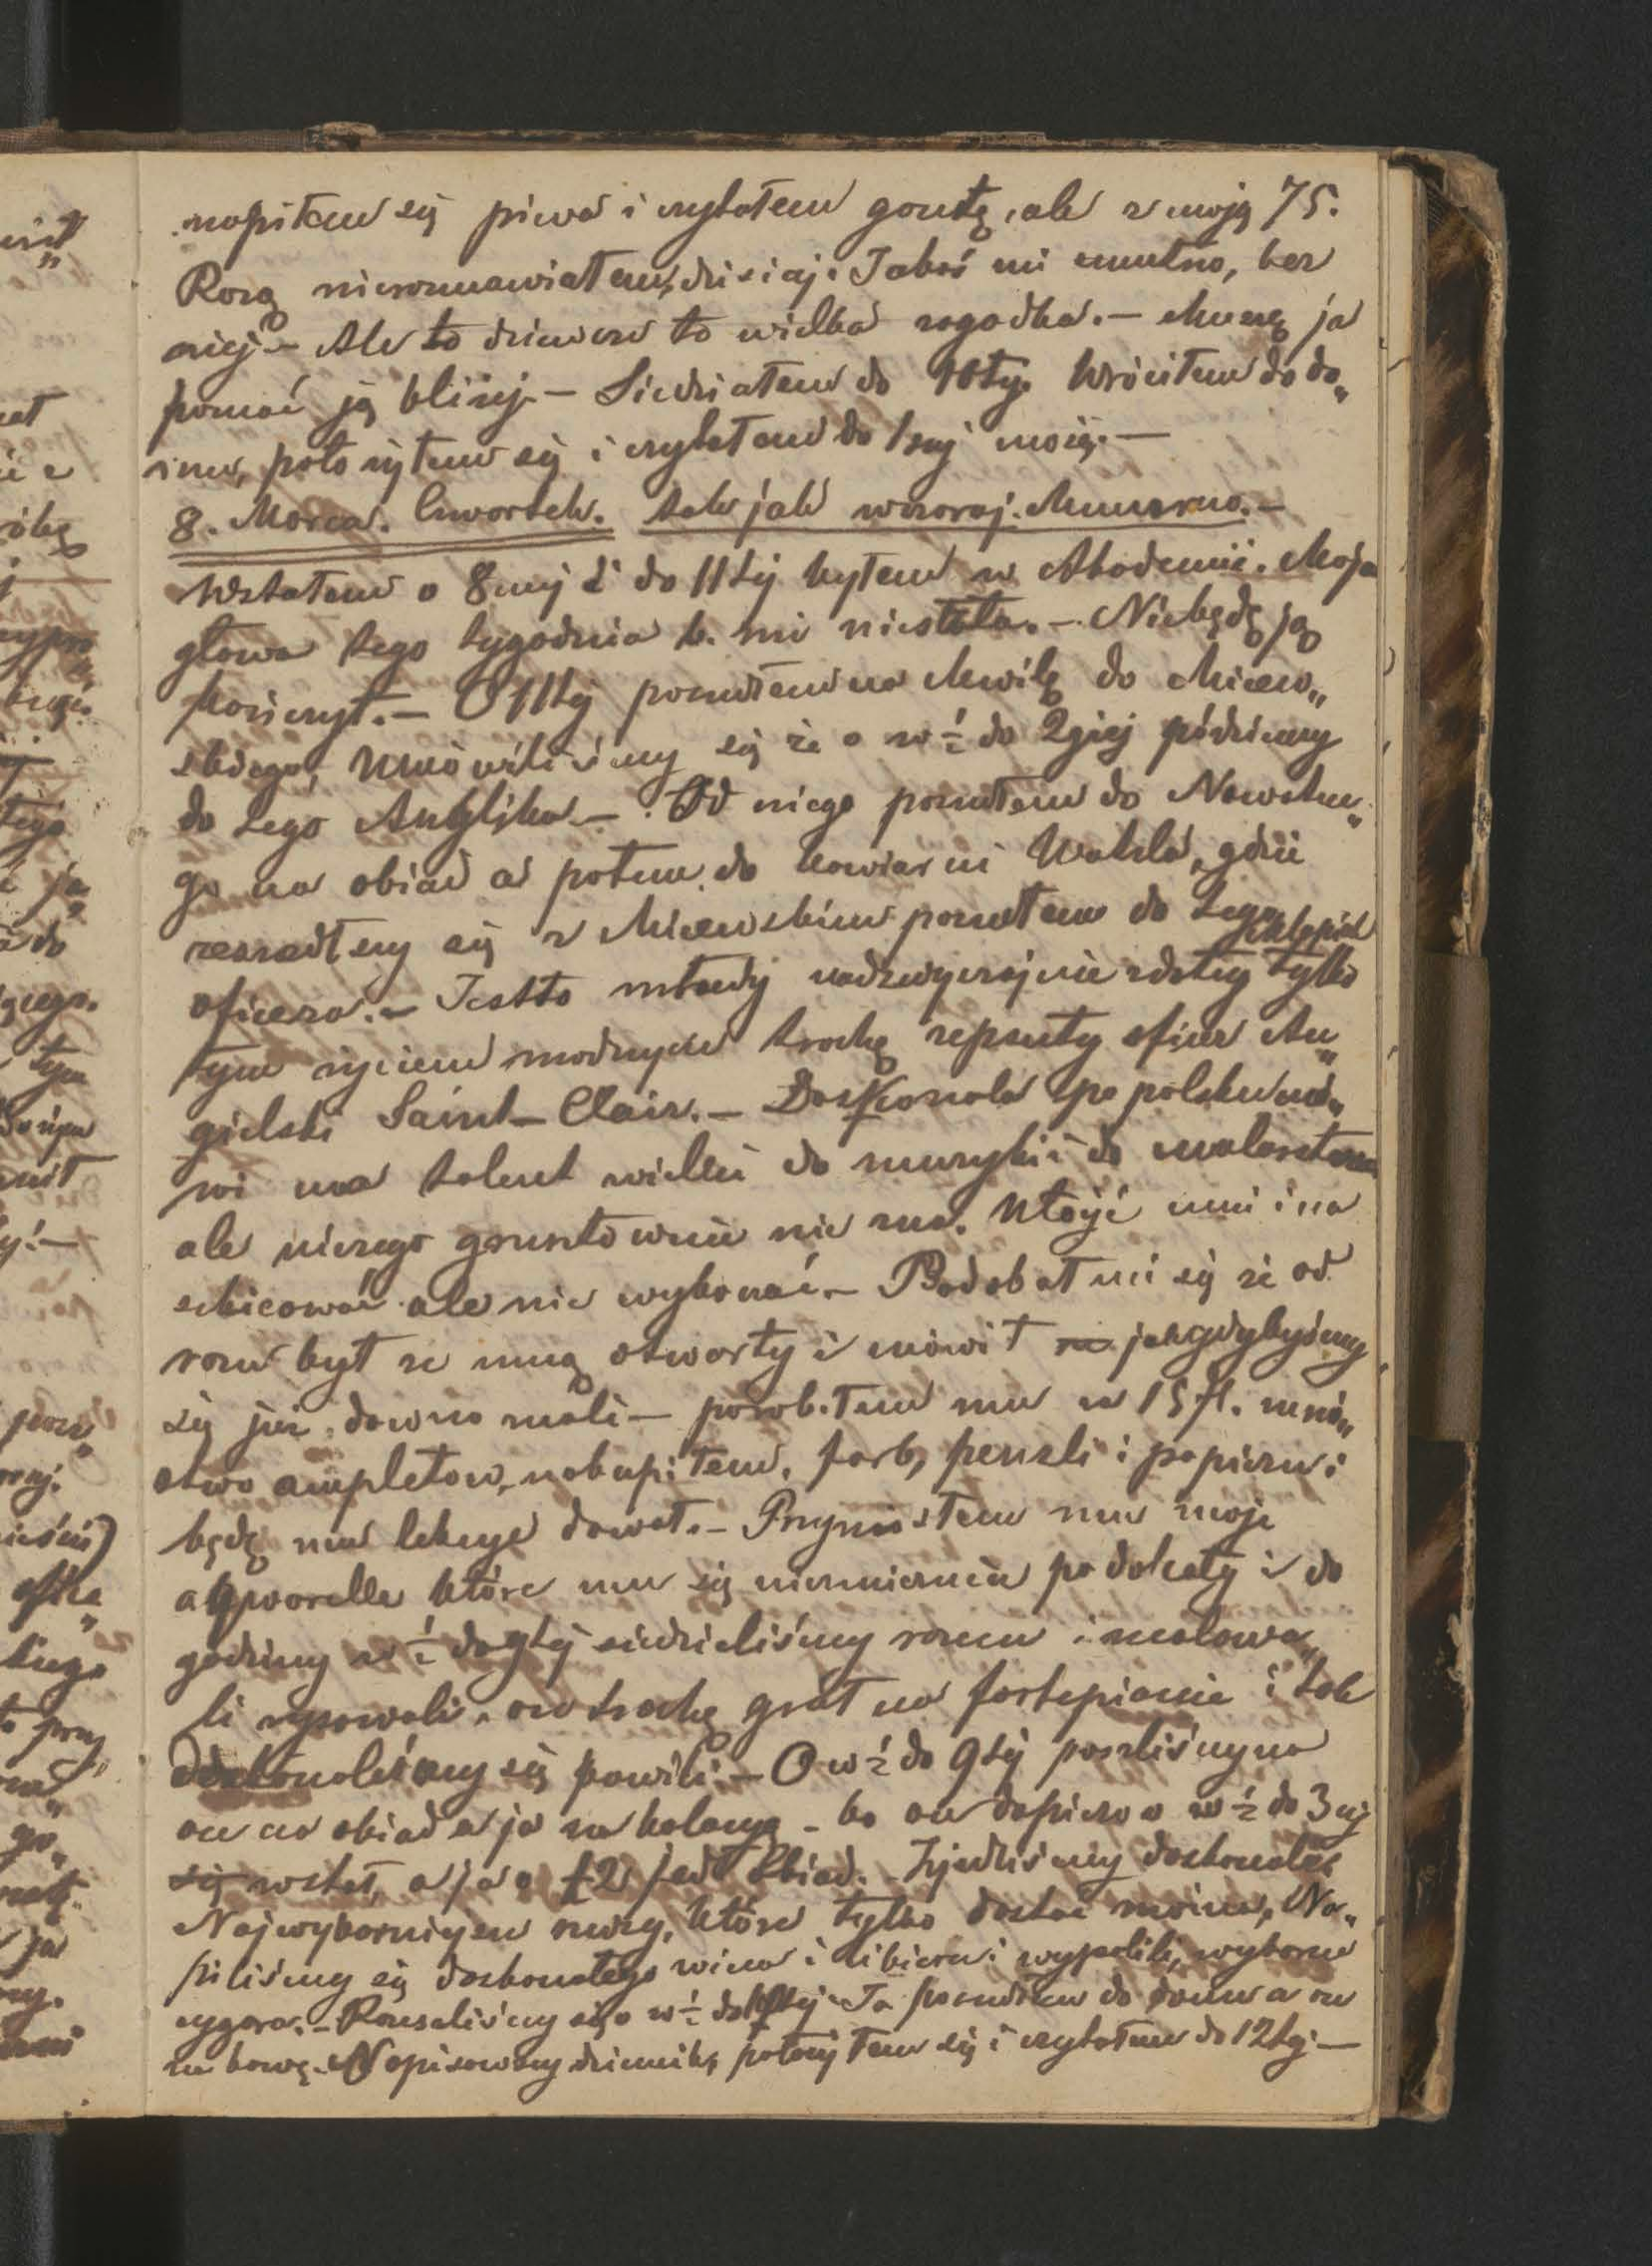 napiłem się piwa i czytałem gazetę, ale z moją 75.
Rozą nierozmawiałem, dzisiaj. Jakoś mi smutno, bez
niej – Ale to dziewcze to wielka zagadka. – Muszę ja
poznać ją bliżej – Siedziałem do 10ty. Wróciłem do do„
mu, położyłem się i czytałem do 1szej
8. Marca. Czwartek. tak jak wczoraj. Chmurno. –
Wstałem o 8mej i do 11tej byłem w Akademii. Moja
głowa tego tygodnia b. mi niestała. – Niebędę ją
kończył. – O 11tej poszedłem na chwilę do Micew„
skiego, umówiliśmy się że o w ½ do 2giej pójdziemy
do tego Anglika – Od niego poszedłem do Nowotne„
go na obiad a potem do kawiarni Wahla, gdzie
zeszedłszy się z Micewskim poszedłem do tego
oficera. – Jestto młody nadzwyczajnie zdolny tylko
tym życiem trochę zepsuty oficer An„
gielski Saint-Clair. – Doskonale po polsku mó„
wi ma talent wielki do muzyki i do malarstwa
ale niczego gruntownie nie zna. Ułożyć umi i na
szkicować ale nie wykonać. – Podobał mi się że od
razu był ze mną otwarty i mówił jakgdybyśmy
się już dawno znali – porobiłem mu za 15 fl. mnó„
stwo nakupiłem, farb, penzli i papieru i
będę mu lekcye dawał. – Przyniosłem mu moje
aqvarelle które mu się niezmiernie podobały i do
godziny w ½ do 9tej siedzieliśmy razem i malowa„
li rysowali, on trochę grał na fortepianie i tak
doskonaleśmy się bawili. – O w ½ do 9tej poszliśmy na
on na obiad a ja na kolacyę – bo on dopiero o w ½ do 3ej
wstał, a ja o 12 jadł obiad. Zjedliśmy doskonale
Najwyborniejsze rzeczy, które tylko dostać można, Na„
piliśmy się doskonałego wina i likieru i wypalili, wyborne
cygara. – Rozeszliśmy się o w ½ do Ja poszedłem do domu a on
na kawę. Napisawszy dziennik, położyłem się i czytałem do 12tej –